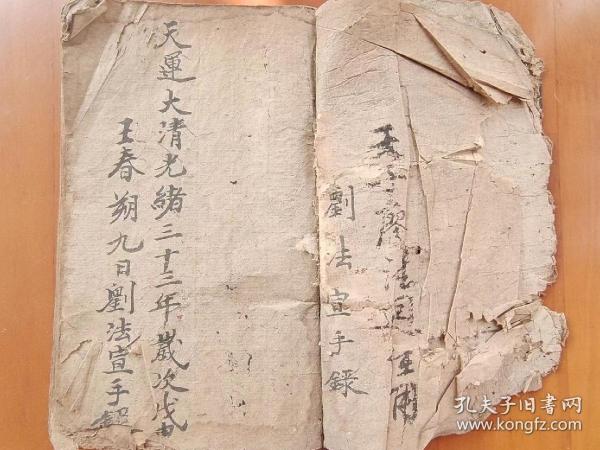 劉法宣手錄
天運大清光緒三十三年歲次戊申
王春朔九日劉法宣手錄
孔夫子旧书网
www.kongfz.com